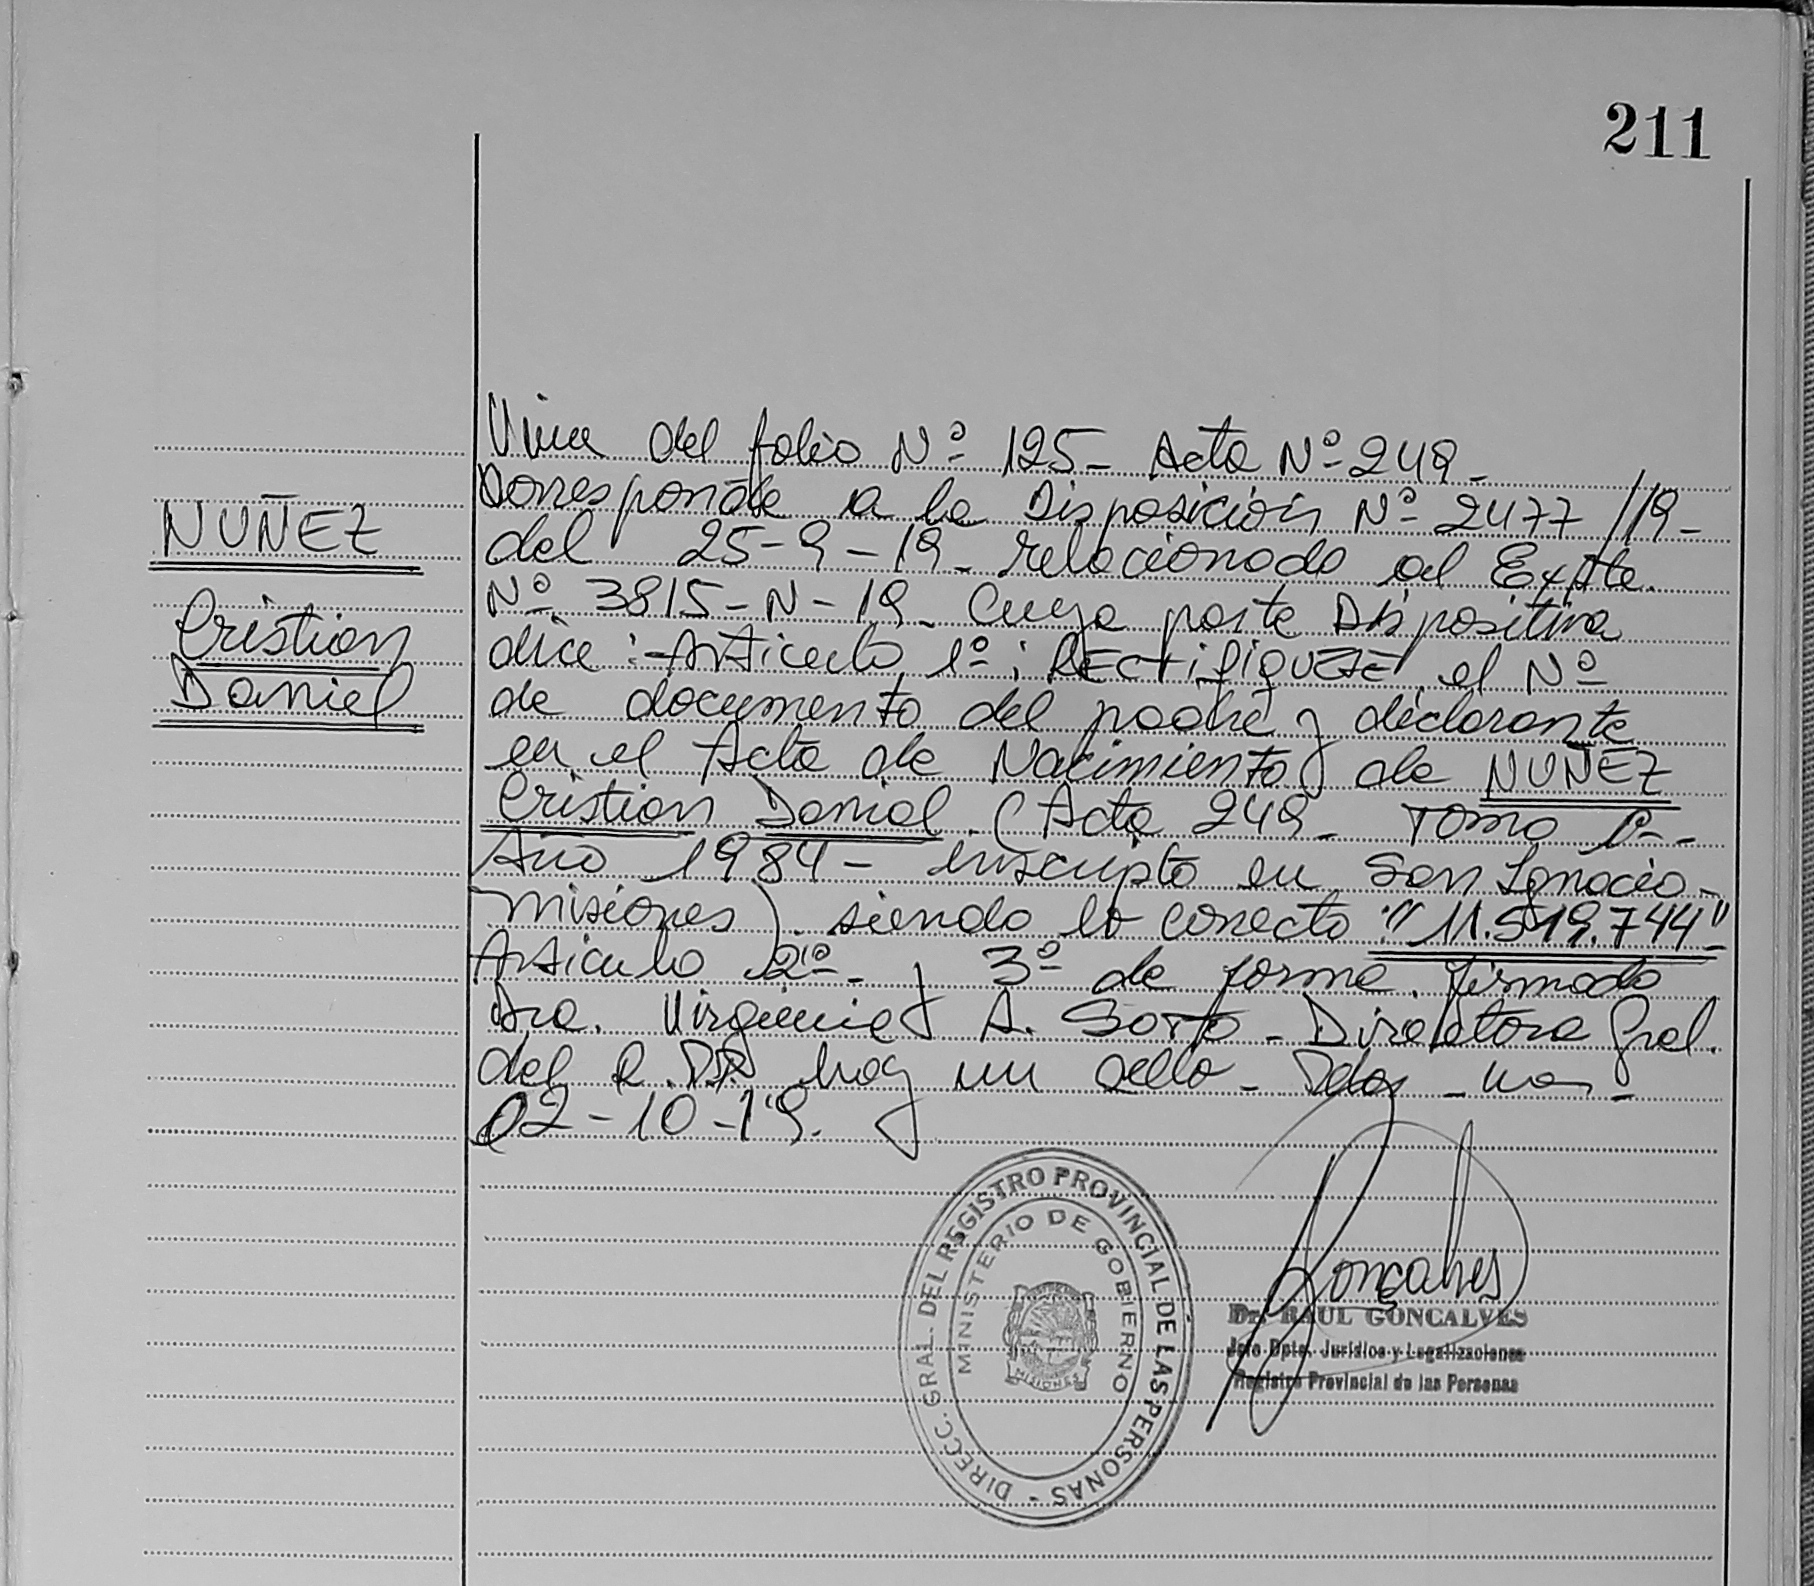 211
NUÑEZ
Cristian
Daniel
Viene del folio Nº 125- Acta Nº 249-
Corresponde a la Disposición Nº 2477/19-
del 25-9-19- relacionado al Expte.
Nº 3815-N-19- Cuya parte Dispositiva
dice: Articulo 1º: RECTIFIQUESE el Nº
de documento del padre y declarante
en el Acta de Nacimiento de NUÑEZ
Cristian Daniel. (Acta 249- Tomo 1º-
Año 1984- inscripto en San Ignacio-
Misiones). siendo lo correcto "11.519.744"
Articulo 2º- y 3º de forma. firmado
Dra. Virginia A. Soto- Directora Gral.
del R.P.P. hay un sello- Pdas-
02-10-19.
DIRECC. GRAL. DEL REGISTRO PROVINCIAL DE LAS PERSONAS -
MINISTERIO DE GOBIERNO
MISIONES
Goncalves
Dr. RAUL GONCALVES
Jefe Dpto. Jurídico y Legalizaciones
Registro Provincial de las Personas